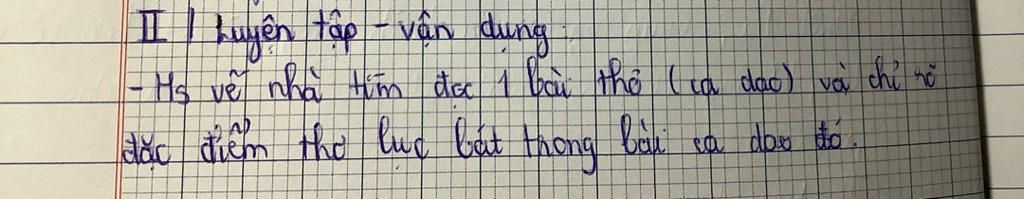 II / Luyện tập - vận dụng :
- Hs về nhà tìm đọc 1 bài thơ (ca dao) và chỉ rõ
đặc điểm thơ lục bát thong bài ca dao đó.